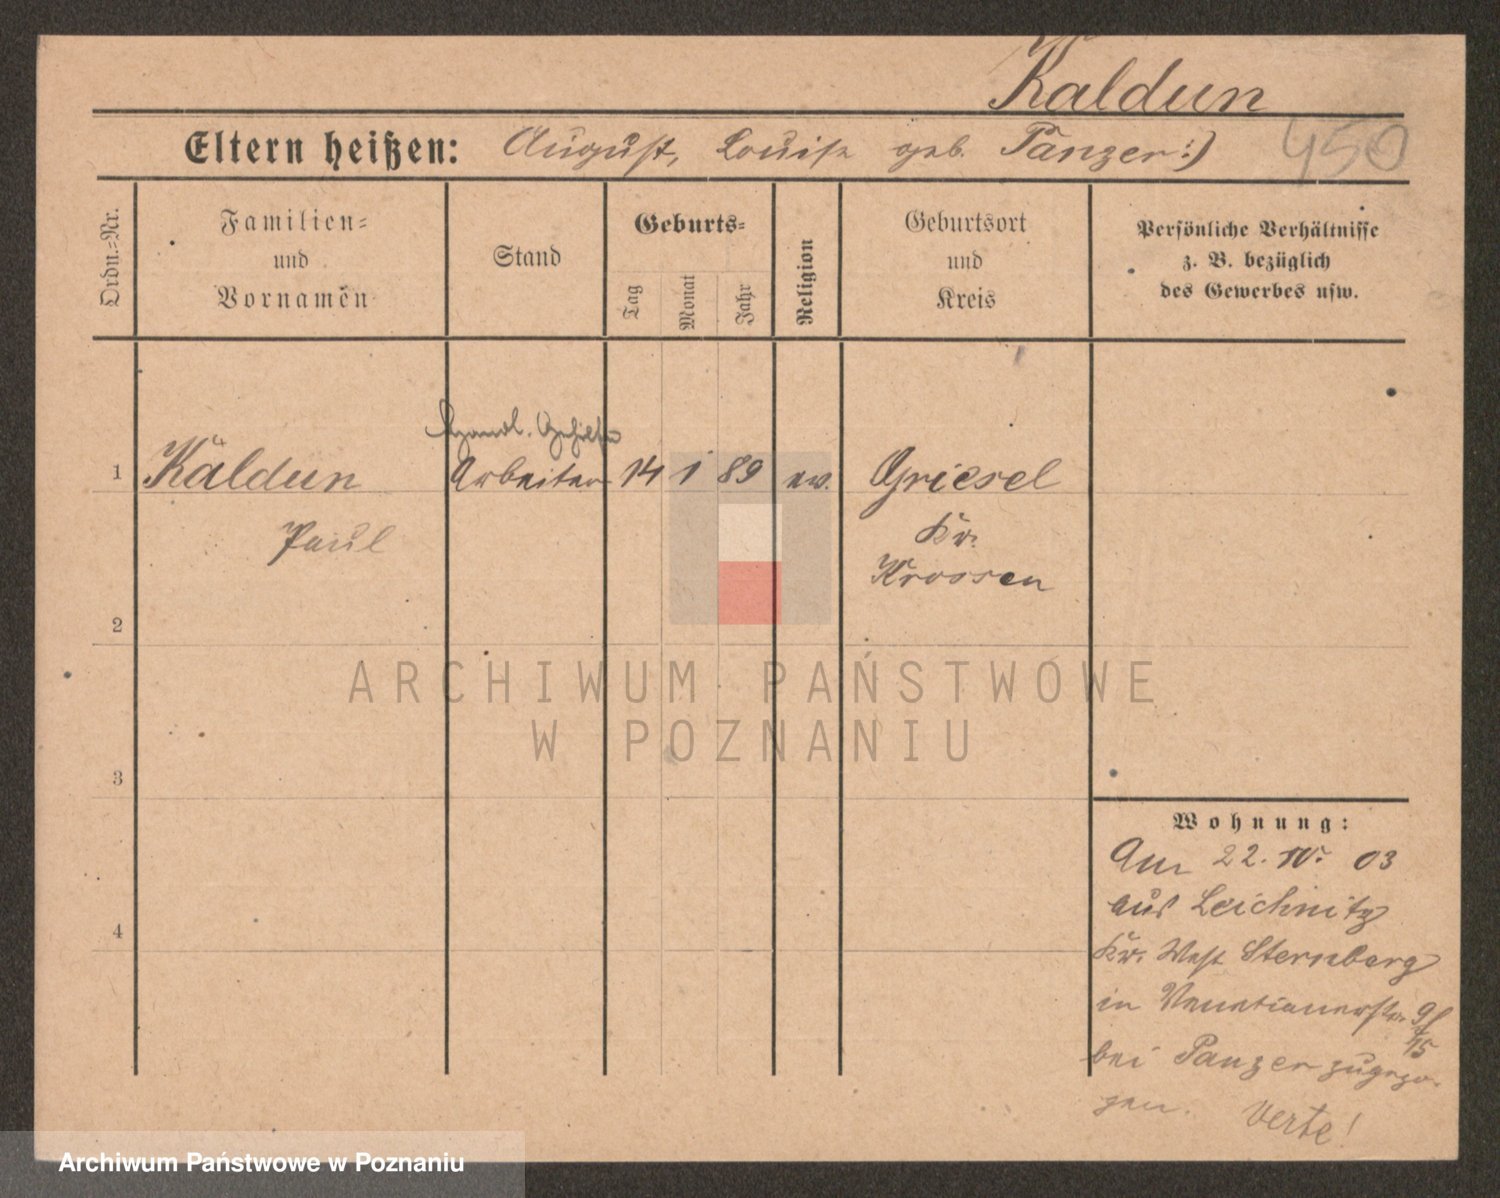 Kaldun
Eltern heißen: August, Louise geb. Panzer:)
450
Ordn.=Nr.
Familien=
und
Vornamen
Stand
Geburts=
Tag
Monat
Jahr
Religion
Geburtsort
und
Kreis
Persönliche Verhältnisse
z. B. bezüglich
des Gewerbes usw.
Handl. Gehilfe
1 Kaldun Arbeiter 14 1 89 ev. Griesel
Paul
Kr.
Krossen
2
3
4
Wohnung:
Am 22. IV. 03
aus Leichnitz
Kr. West Sternberg
in Venetianerstr. 9/
15
bei Panzer zugezo-
gen. Verte!
ARCHIWUM PAŃSTWOWE
W POZNANIU
Archiwum Państwowe w Poznaniu